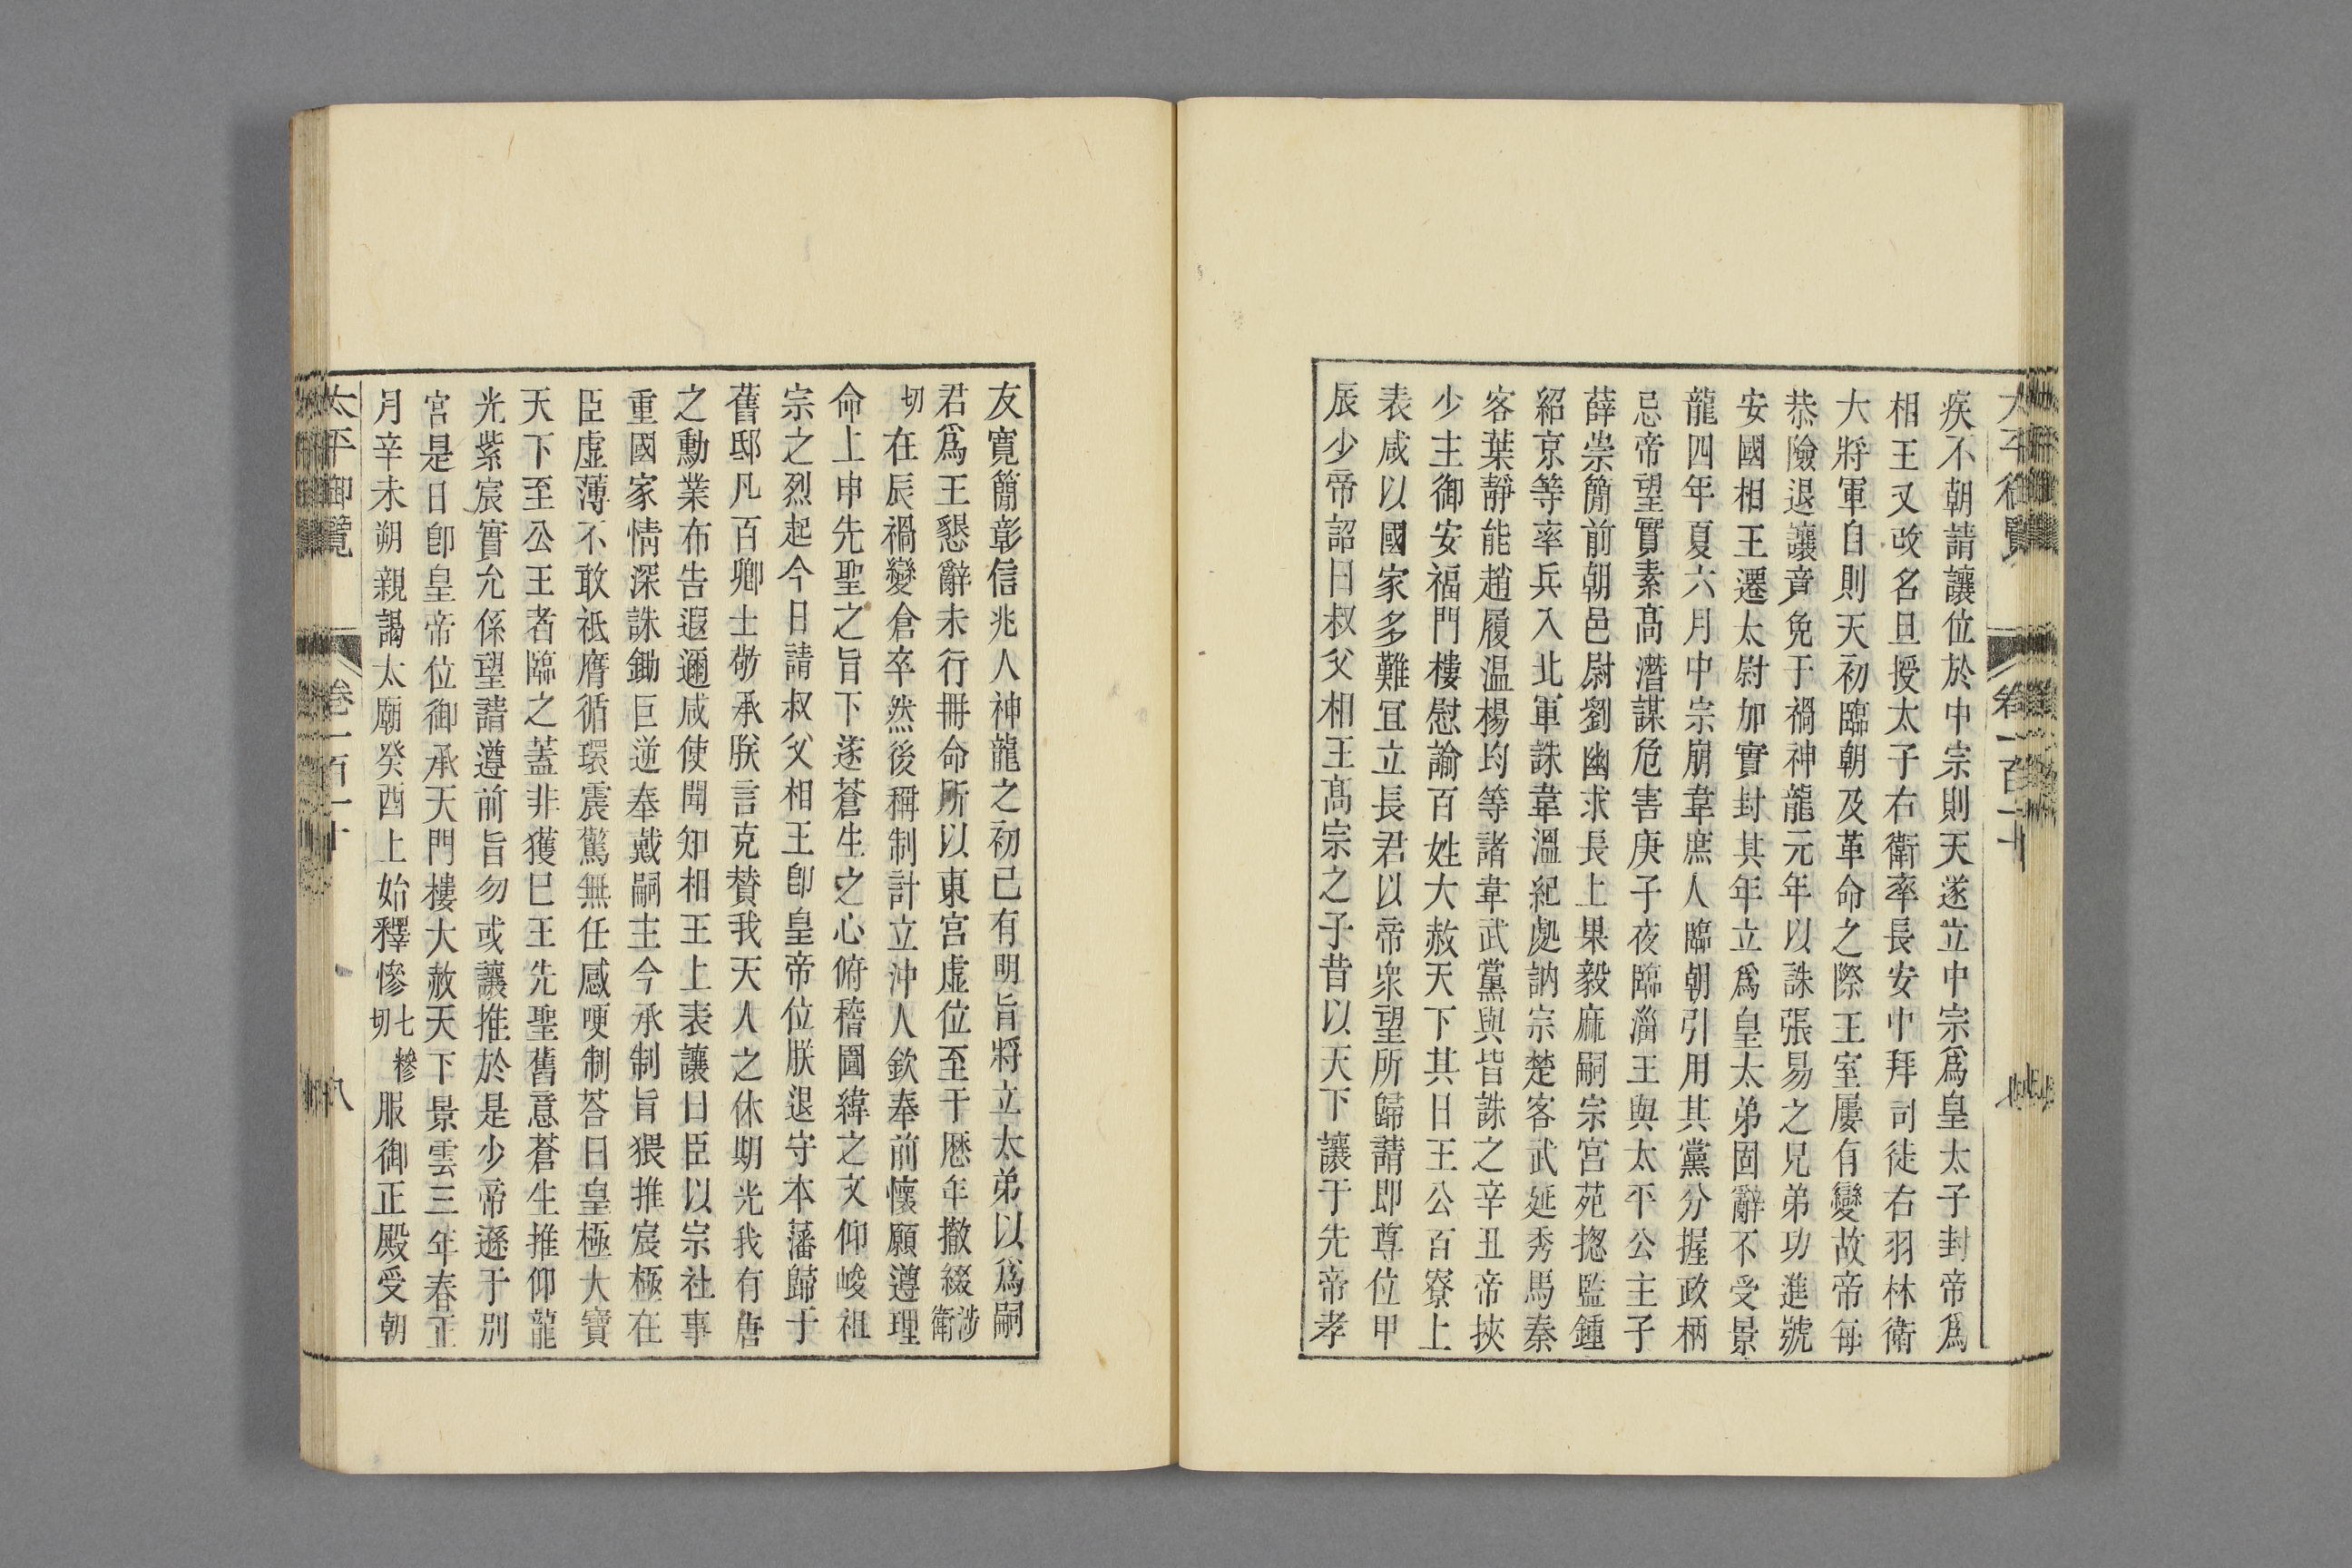 太平御覽 卷一百一十
疾不朝請讓位於中宗則天遂立中宗爲皇太子封帝爲
相王又改名旦授太子右衛率長安中拜司徒右羽林衛
大將軍自則天初臨朝及革命之際王室屢有變故帝每
恭險退讓竟免于禍神龍元年以誅張易之兄弟功進號
安國相王遷太尉加實封其年立爲皇太弟固辭不受景
龍四年夏六月中宗崩韋庶人臨朝引用其黨分握政柄
忌帝望實素髙潛謀危害庚子夜臨淄王與太平公主子
薛崇簡前朝邑尉劉幽求長上果毅麻嗣宗宮苑揔監鍾
紹京等率兵入北軍誅韋溫紀處訥宗楚客武延秀馬秦
客葉靜能趙履温楊均等諸韋武黨與皆誅之辛丑帝挾
少主御安福門樓慰諭百姓大赦天下其日王公百寮上
表咸以國家多難冝立長君以帝衆望所歸請即尊位甲
辰少帝詔曰叔父相王髙宗之子昔以天下讓于先帝孝
友寬簡彰信兆人神龍之初已有明旨將立太弟以爲嗣
君爲王懇辭未行冊命所以東宮虛位至于厯年撤綴涉衛
切在辰禍變倉卒然後稱制計立沖人欽奉前懷願遵理
命上申先聖之旨下遂蒼生之心俯稽圖緯之文仰峻祖
宗之烈起今日請叔父相王卽皇帝位朕退守本藩歸于
舊邸凡百卿士敬承朕言克贊我天人之休期光我有唐
之勳業布告遐邇咸使聞知相王上表讓曰臣以宗社事
重國家情深誅鋤巨逆奉戴嗣主今承制旨猥推宸極在
臣虛薄不敢祇膺循環震驚無任感哽制荅曰皇極大寶
天下至公王者臨之蓋非獲已王先聖舊意蒼生推仰龍
光紫宸實允係望請遵前旨勿或讓推於是少帝遜于別
宮是日卽皇帝位御承天門樓大赦天下景雲三年春正
月辛未朔親謁太廟癸酉上始釋慘七㨆切服御正殿受朝
太平御覽 卷一百一十 八